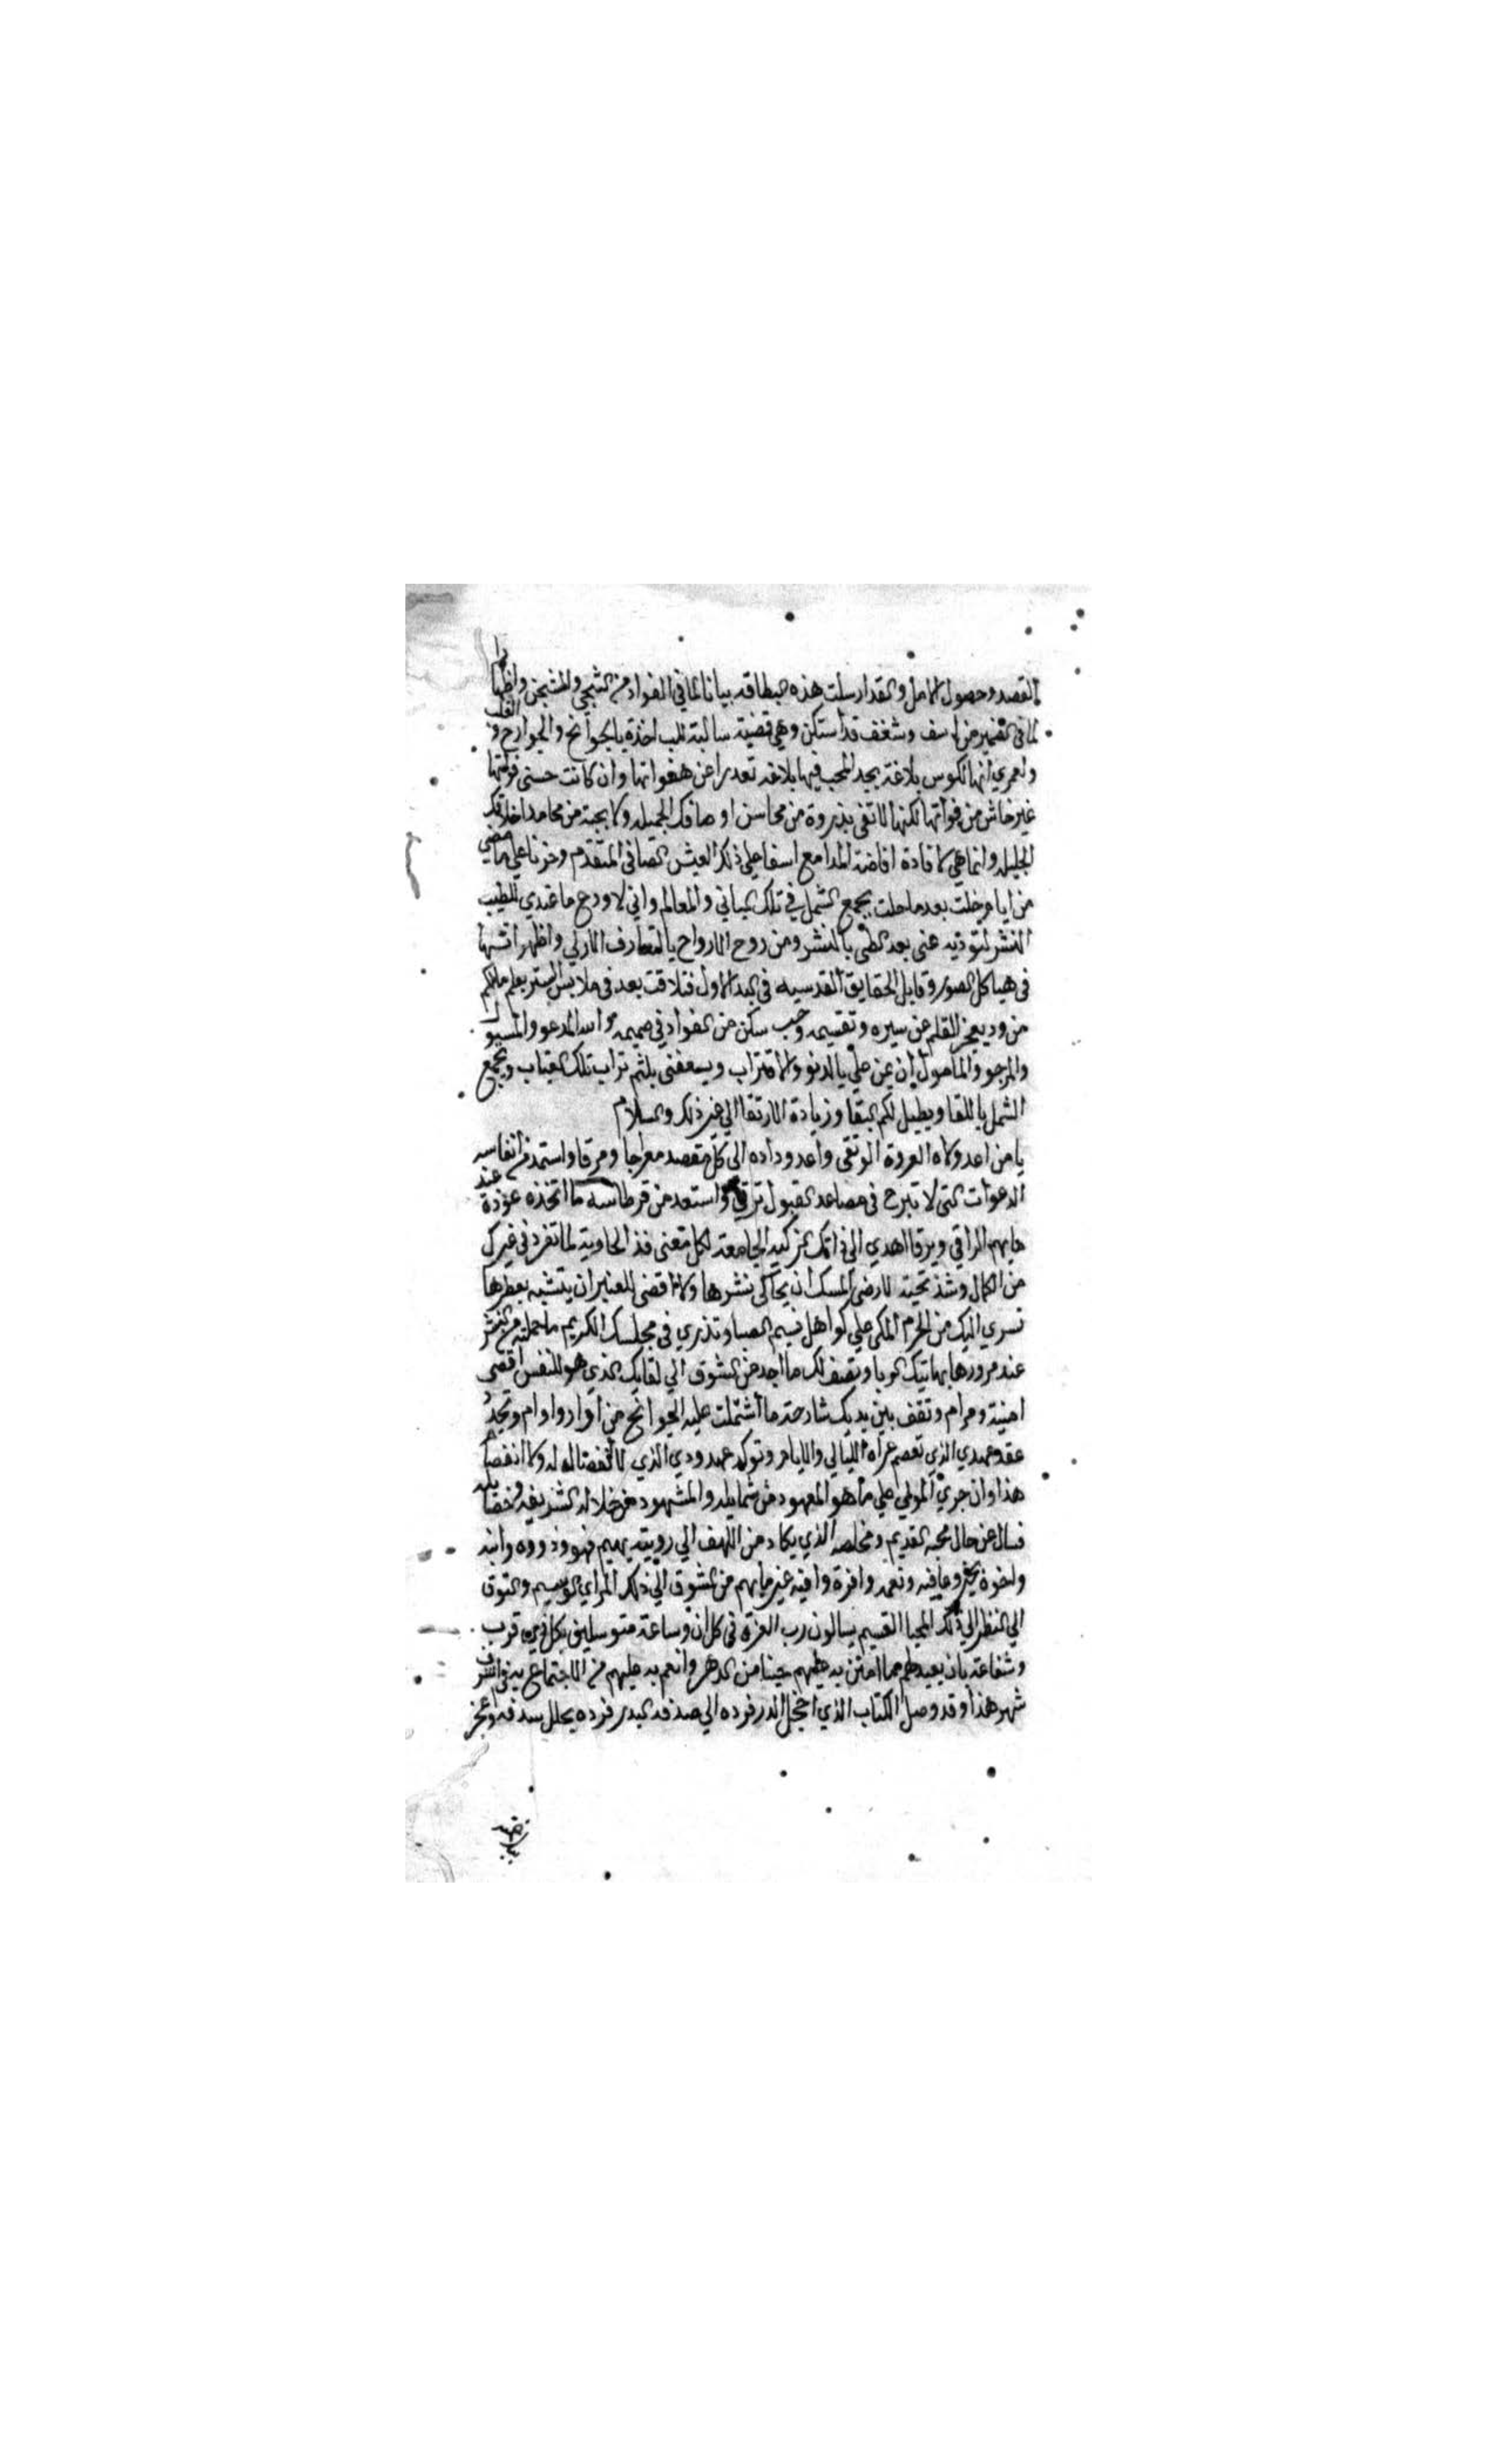 القصد وحصول الامل ولقد ارسلت هذه البطاقه بيانا لما في الفواد من الشجي والشجن واظهارا
لما في الضمير من اسف وشغف قد استكن وهي قضية سالبة للب اخذة بالجوانح والجوارح والقلب
ولعمري انها لكوس بلاغة يجد المحب فيها بلاغه تعد را عن هفواتها وان كانت حسنى
غير خاش من فواتها لكنها لا تفي بذروة من محاسن اوصافك الجميله ولا بجبة من محامد اخلاقك
الجليله وانما هي لافادة افاضة المدامع اسفا على ذلك العيش الصافي المتقدم وحزنا على ما مضى
من ايام خلت بعد ما حلت بجمع الشمل في تلك المباني والمعالم واني لاودع ما عندي للطيب
النشر لتؤديه عني بعد الطي بالنشر ومن روح الارواح بالتعارف الازلي واظهر اشباحها
في هياكل الصور وقابل الحقايق القدسيه في البدا الاول فتلاقت بعد في ملابس البشر يعلم مالكم
من ود يعجز القلم عن سيره وتقسيمه وحب سكن من الفواد في صميمه والله المدعو والمسئول
والمرجو والمامول ان يمن علي بالدنو والاقتراب ويسعفني بلثم تراب تلك العتاب ويجمع
الشمل باللقا ويطيل لكم البقا وزيادة الارتقا الي غير ذلك والسلام
يا من اعد ولاه العروة الوثقى واعد وداده الى كل مقصد معراجا ومرقا واستمد من انفاسه
الدعوات التي لا تبرح في مصاعد القبول ترقى واستعد من قرطاسه ما اتخذه عوذة عند
ما يهم الراقي ويرقا اهدي الى ذاتك الزكيه الجامعة لكل معنى فذ الحاوية لما تفرد في غيرك
من الكمال وشذ تحية لا رضى المسك ان يحاكى نشرها ولا اقضى للعنبر ان يتشبه بعطرها
تسري اليك من الحرم المكي علي كواهل نسيم الصبا وتذري في مجلسك الكريم ما حملته من النشر
عند مرورها بهاتيك الربا وتصف لك ما اجد من الشوق الي لقايك الذي هو للنفس اقصى
امنية ومرام وتقف بين يديك شارحة ما اشتملت عليه الجوانح من اوار واوام وتجدد
عقد عهدي الذي تفصم عراه الليالي والايام وتوكد عهد ودي الذي لا انفصال له ولا انفصام
هذا وان جري المولي علي ما هو المعهود من شمايله والمشهود من خلاله الشريفه وخصايله
فسال عن حال محبه القديم ومخلصه الذي يكاد من اللهف الي رويته يهيم فهو وذووه وابنه
واخوه بخير وعافيه ونعمه وافرة وافيه غير ما بهم من الشوق الي ذلك المراي الوسيم والتوق
الي النظر الي ذلك المحيا القسيم يسالون رب العزة في كل ان وساعة متوسلين بكل ذي قرب
وشفاعة بان يعيد لهم مما امتن به عليهم حينا من الدهر وانعم به عليهم من الاجتماع به في اشرف
شهر هذا وقد وصل الكتاب الذي اخجل الدر فرده الي صدفه البدر فرده يحلل سدفه واعجز